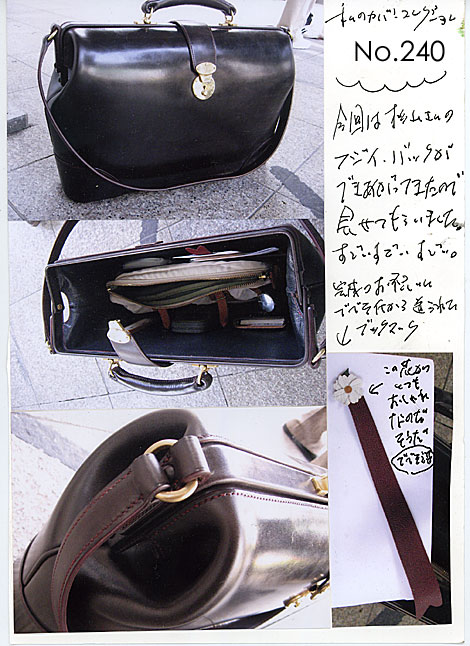 私のカバンコレクション
No.240
今回は杉山さんの
フジイ.バックが
できあがってきたので
見せてもらいました。
すごいすごいすごい。
完成のお祝いに
から送られた
↓ブックマーク
この花が
とっても
おしゃれ
なのだ。
そうだ